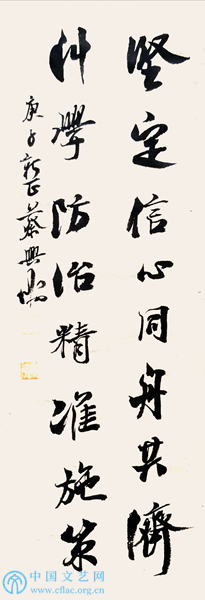 堅定信心同舟共濟
科學防治精準施策
庚子新正蔡興洲
中国文艺网
www.cflac.org.cn